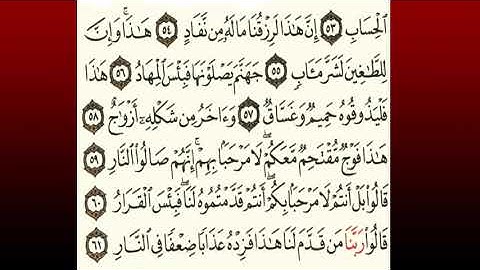 ٱلْحِسَابِ ٥٣ إِنَّ هَٰذَا لَرِزْقُنَا مَا لَهُۥ مِن نَّفَادٍ ٥٤ هَٰذَا ۚ وَإِنَّ
لِلطَّٰغِينَ لَشَرَّ مَـَٔابٍ ٥٥ جَهَنَّمَ يَصْلَوْنَهَا فَبِئْسَ ٱلْمِهَادُ ٥٦ هَٰذَا
فَلْيَذُوقُوهُ حَمِيمٌ وَغَسَّاقٌ ٥٧ وَءَاخَرُ مِن شَكْلِهِۦٓ أَزْوَٰجٌ ٥٨
هَٰذَا فَوْجٌ مُّقْتَحِمٌ مَّعَكُمْ ۖ لَا مَرْحَبًۢا بِهِمْ ۚ إِنَّهُمْ صَالُوا۟ ٱلنَّارِ ٥٩
قَالُوا۟ بَلْ أَنتُمْ لَا مَرْحَبًۢا بِكُمْ ۖ أَنتُمْ قَدَّمْتُمُوهُ لَنَا ۖ فَبِئْسَ ٱلْقَرَارُ ٦٠
قَالُوا۟ رَبَّنَا مَن قَدَّمَ لَنَا هَٰذَا فَزِدْهُ عَذَابًا ضِعْفًا فِى ٱلنَّارِ ٦١